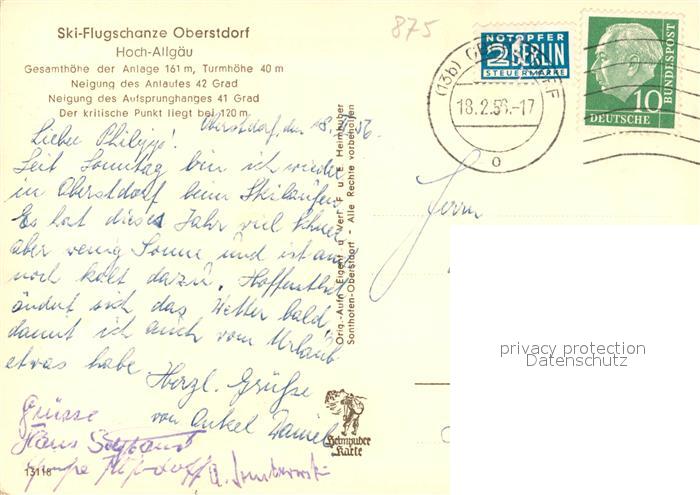 Ski-Flugschanze Oberstdorf
Hoch-Allgäu
Gesamthöhe der Anlage 161 m, Turmhöhe 40 m
Neigung des Anlaufes 42 Grad
Neigung des Aufsprunghanges 41 Grad
Der kritische Punkt liegt bei 120 m
875
NOTOPFER
2 BERLIN
STEUERMARKE
(13b)
18.2.56.-17
o
10
DEUTSCHE
BUNDESPOST
Oberstdorf, den 18.
Lieber Philipp!
Seit Sonntag bin ich wieder
in Oberstdorf beim Skilaufen.
Es hat dieses Jahr viel Schnee
aber wenig Sonne und ist auch
noch kalt dazu. Hoffentlich
ändert sich das Wetter bald,
damit ich auch vom Urlaub
etwas habe
Herzl. Grüße
von Onkel Daniel
Grüsse
Hans
13118
Orig.-Aufn. Eigent. u. Verl. F. u. E. Heimhuber
Sonthofen-Oberstdorf - Alle Rechte vorbehalten
Heimhuber
Karte
Herrn
privacy protection
Datenschutz